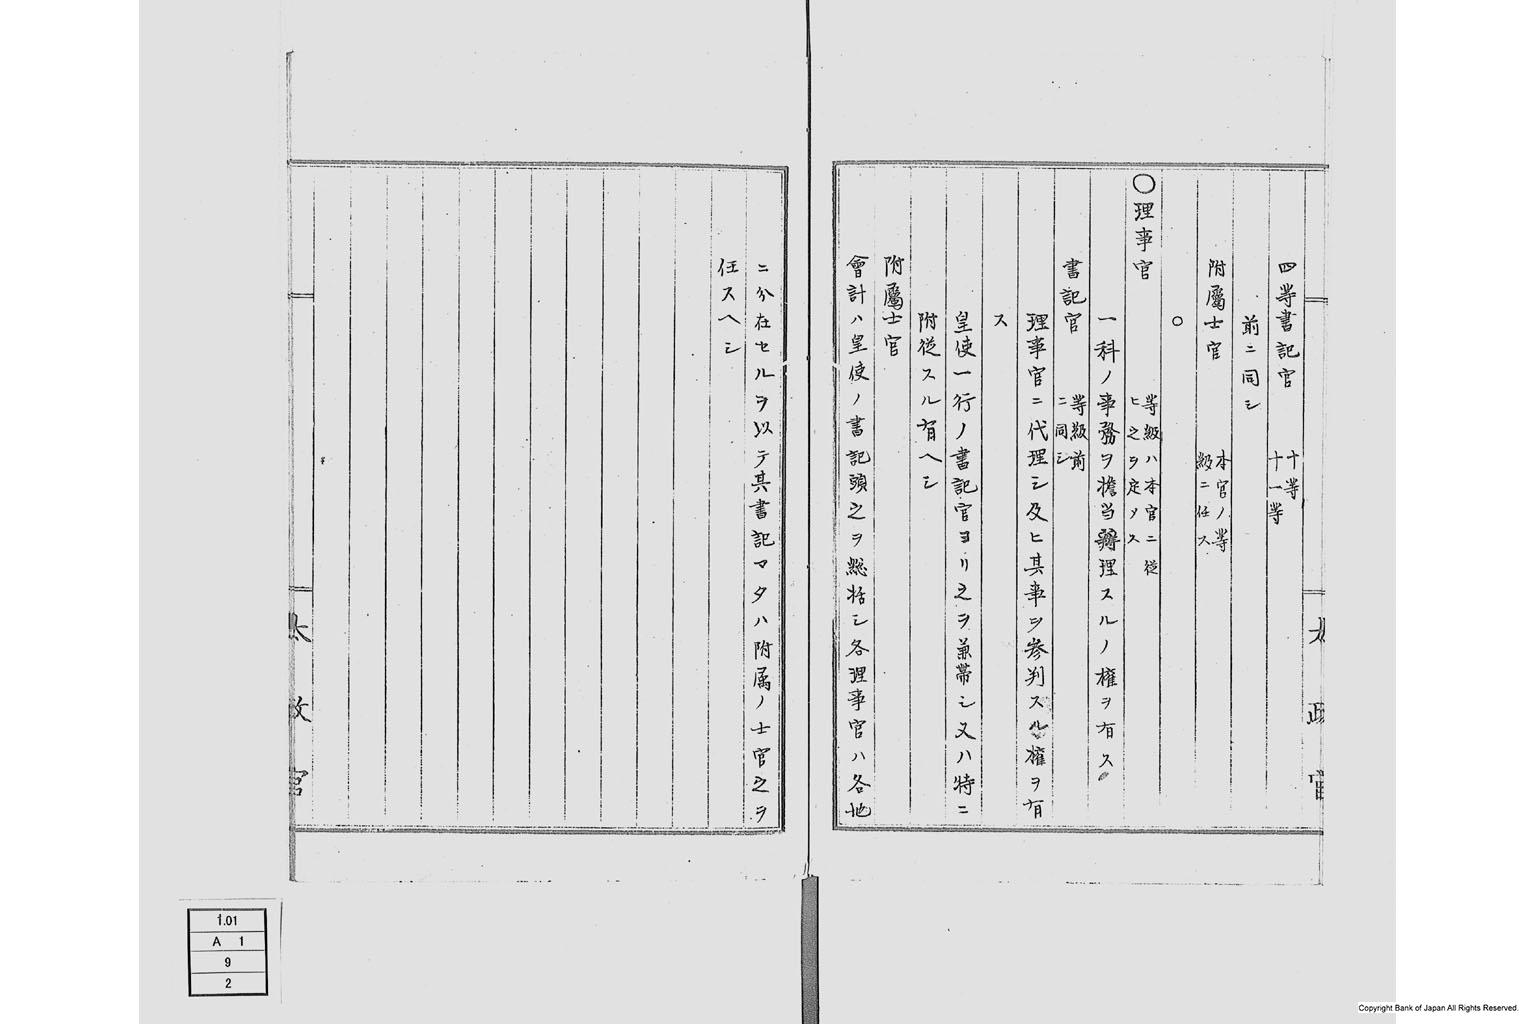 四等書記官 十等
十一等
前ニ同シ
附屬士官 本官ノ等
級ニ任ス
○
○理事官 等級ハ本官ニ從
ヒ之ヲ定ノス
一科ノ事務ヲ擔当辨理スルノ權ヲ有ス
書記官 等級前
ニ同シ
理事官ニ代理シ及ヒ其事ヲ參判スル權ヲ有
ス
皇使一行ノ書記官ヨリ之ヲ兼帶シ又ハ特ニ
附從スル有ヘシ
附屬士官
會計ハ皇使ノ書記頭之ヲ総括シ各理事官ハ各地
太政官
ニ分在セルヲ以テ其書記マタハ附属ノ士官之ヲ
任スヘシ
太政官
1.01
A 1
9
2
Copyright Bank of Japan All Rights Reserved.